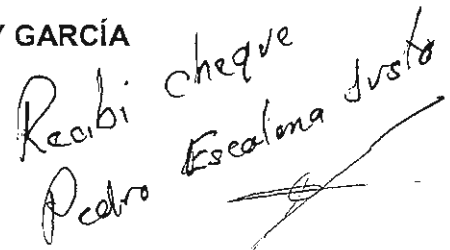 Y GARCÍA
Recibi cheque
Pedro Escalona Justo